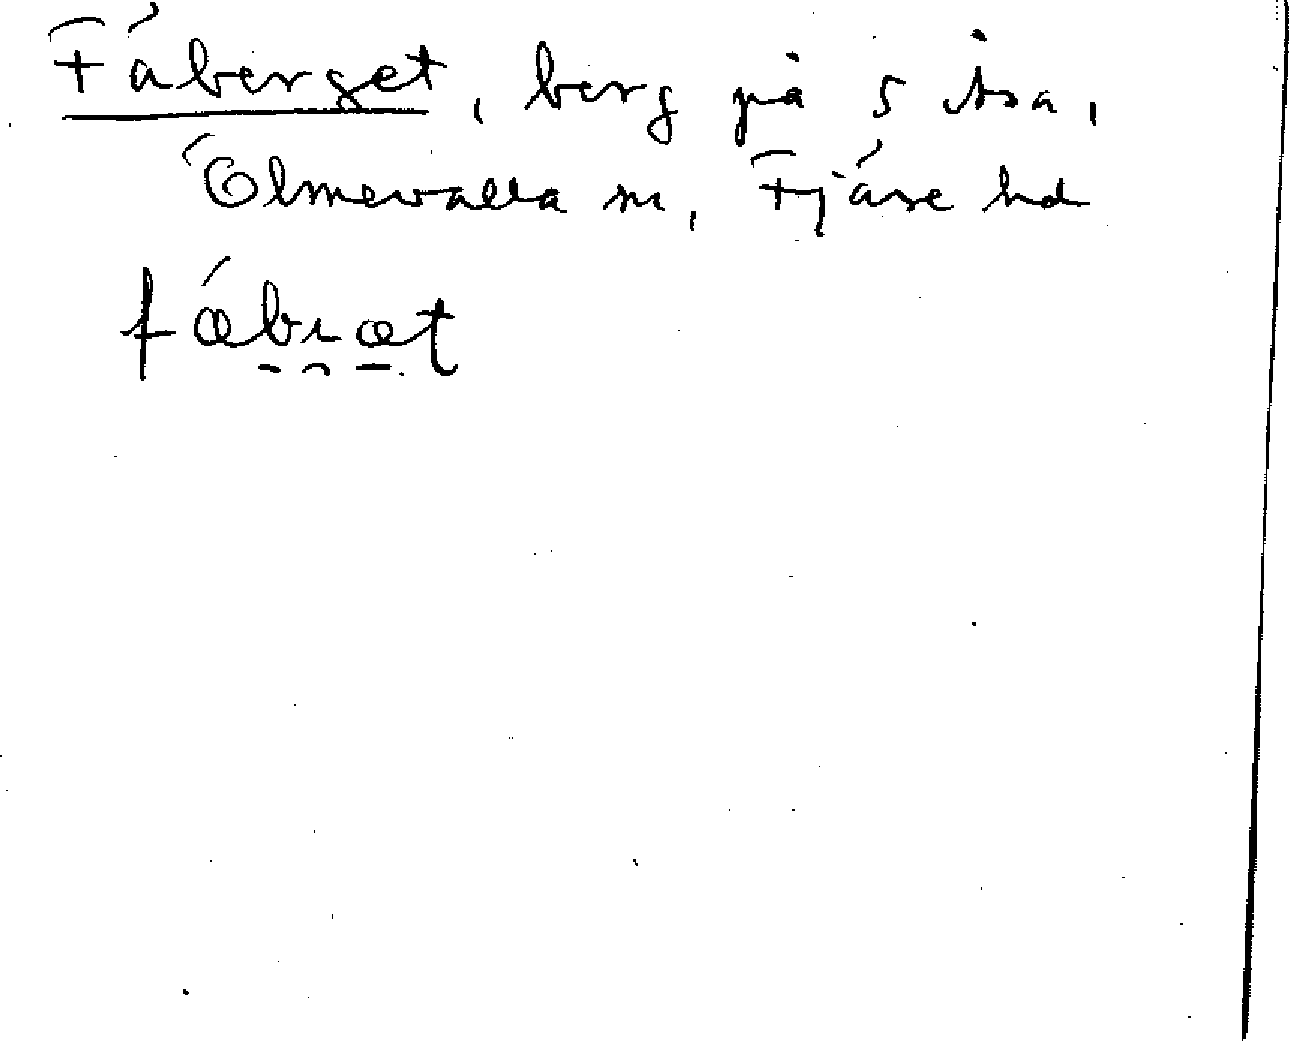 Fáberget, berg på s Åsa,
Ölmevalla sn, Fjäre hd